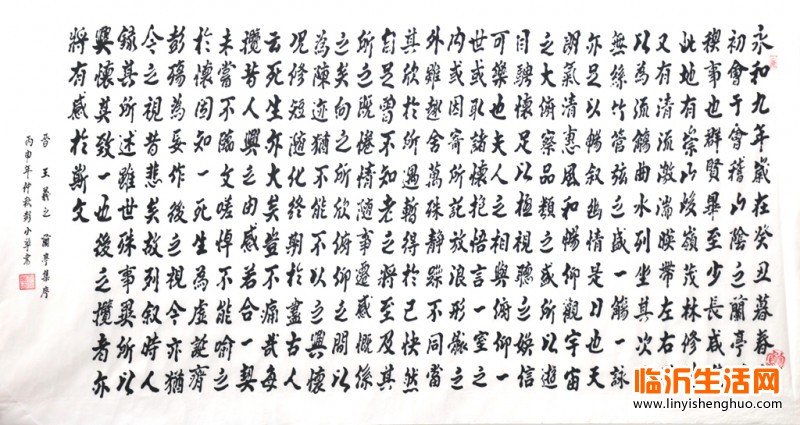 永和九年歲在癸丑暮春
初會于會稽山陰之蘭亭
禊事也群賢畢至少長咸
此地有崇山峻嶺茂林修
又有清流激湍暎帶左右
以為流觴曲水列坐其次
無絲竹管弦之盛一觴一詠
亦足以暢叙幽情是日也天
朗氣清惠風和暢仰觀宇宙
之大俯察品類之盛所以遊
目騁懷足以極視聽之娛信
可樂也夫人之相與俯仰一
世或取諸懷抱悟言一室之
内或因寄所託放浪形骸之
外雖趣舍萬殊靜躁不同當
其欣於所遇暫得於己快然
自足曾不知老之將至及其
所之既倦情隨事遷感慨係
之矣向之所欣俯仰之間以
為陳迹猶不能不以之興懷
况修短隨化終期於盡古人
云死生亦大矣豈不痛哉每
攬昔人興之由感若合一契
未嘗不臨文嗟悼不能喻之
於懷固知一死生為虛誕齊
彭殤為妄作後之視今亦猶
今之視昔悲矣故列叙時人
錄其所述雖世殊事異所以
興懷其致一也後之攬者亦
將有感於斯文
晉王羲之蘭亭集序
丙申年仲秋彭小華書
临沂生活网
www.linyishenghuo.com